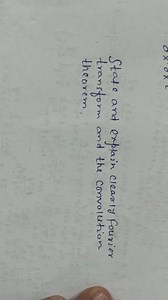 State and explain clearly fourier
transform and the convolution
theorem.